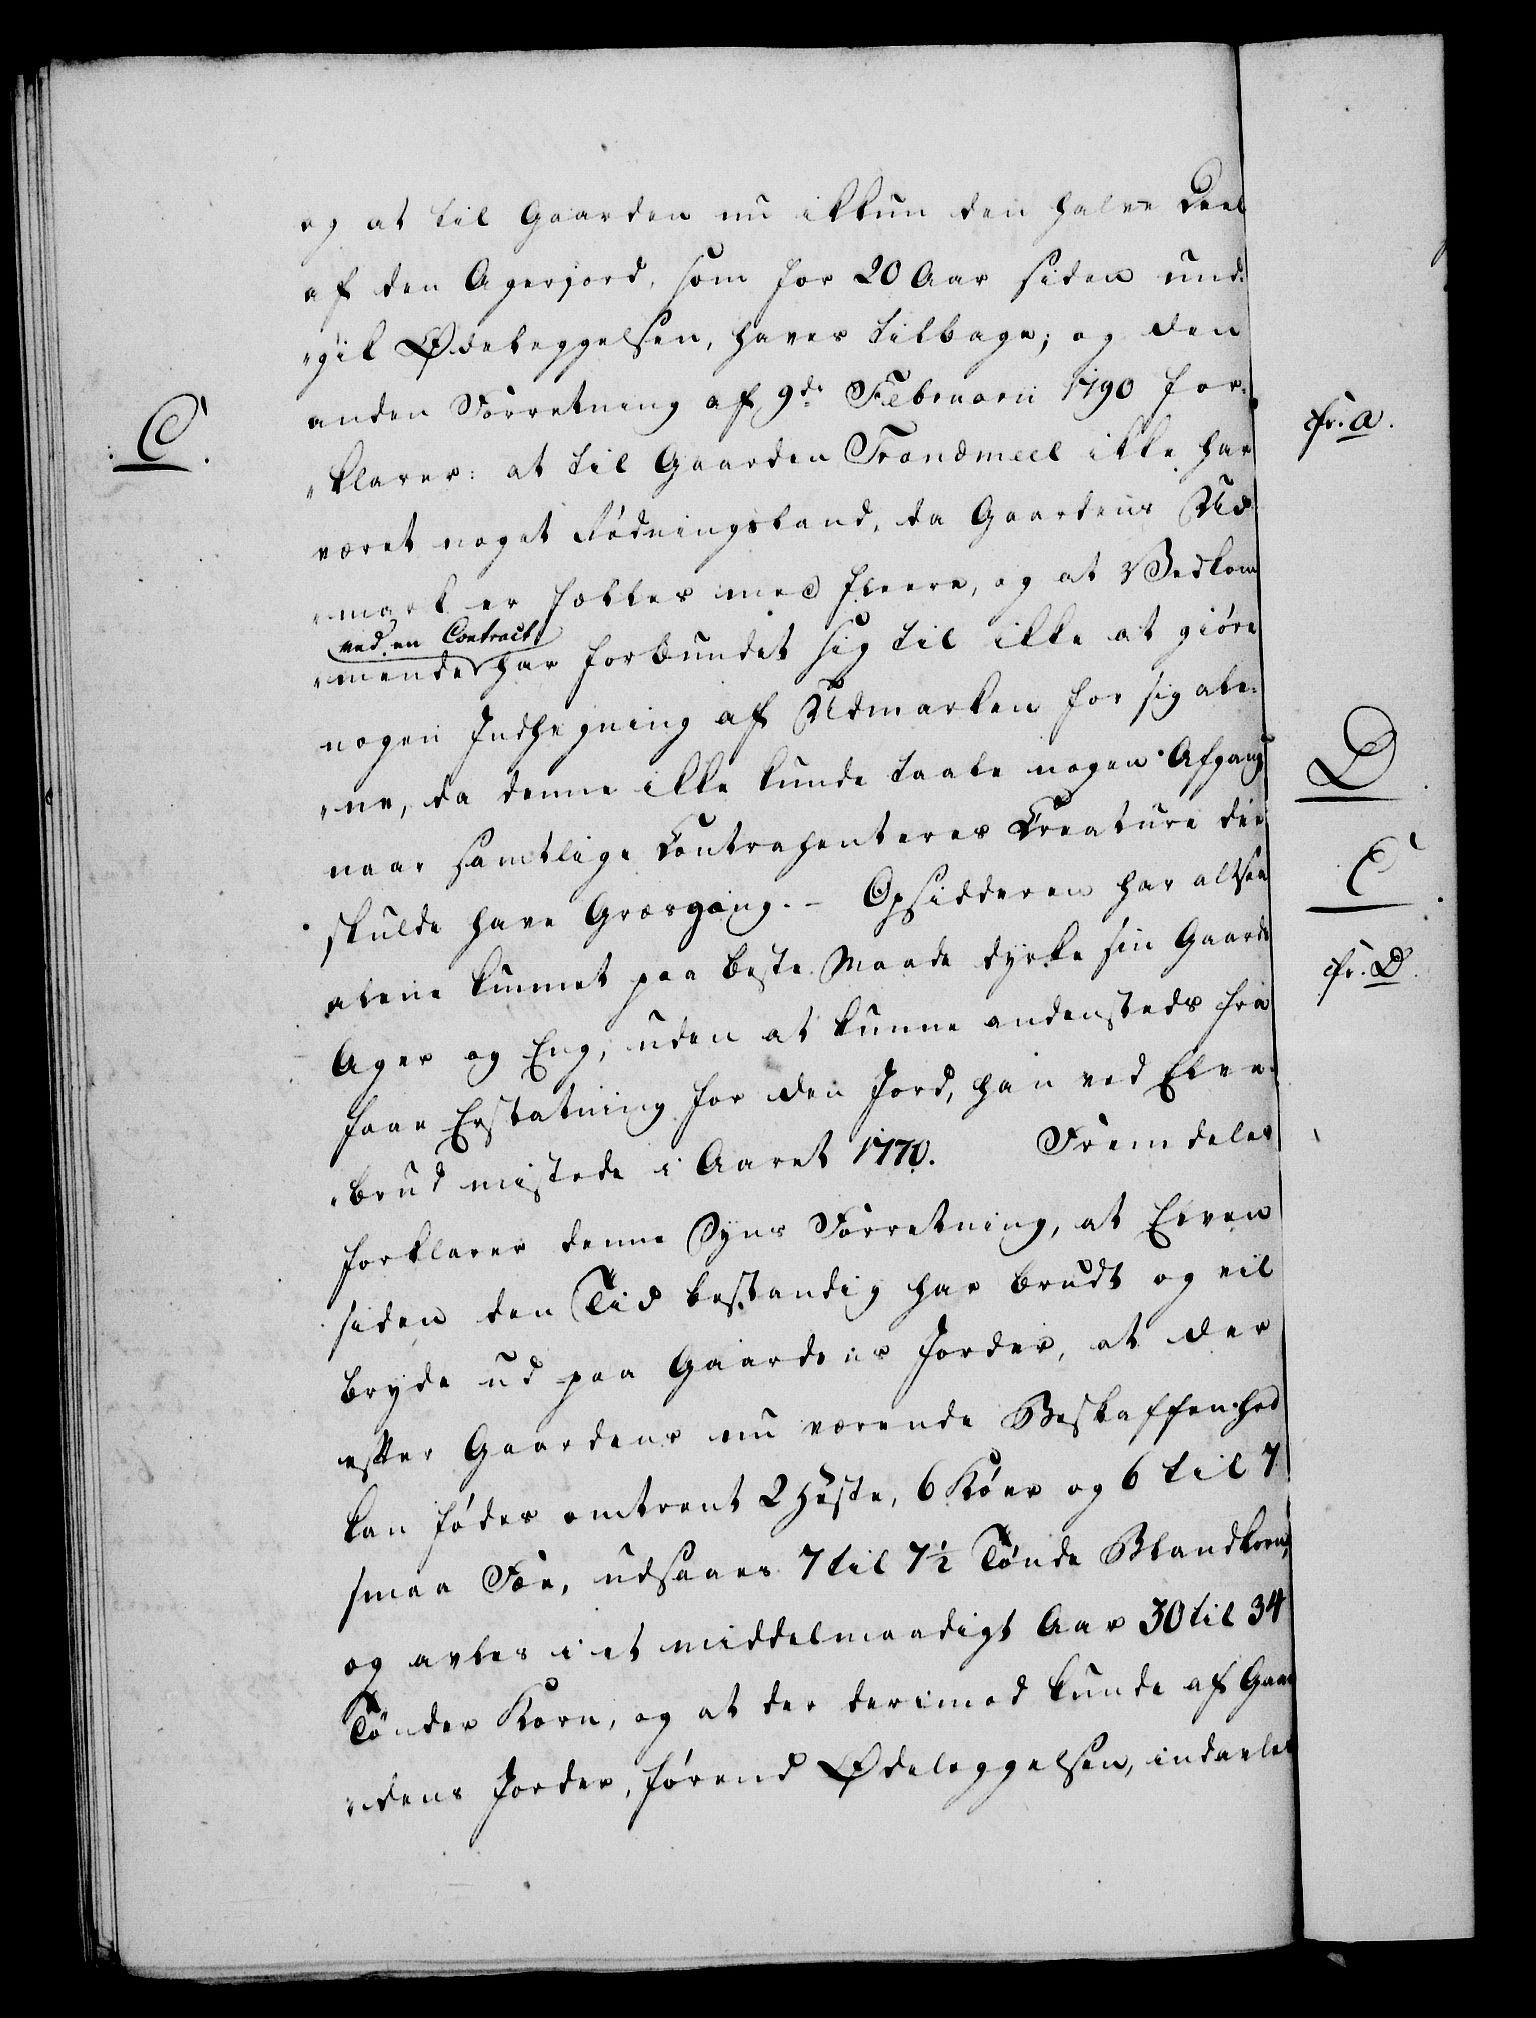 og at til Gaarden nu ikkun den halve Deel
af den Agerjord, som for 20 Aar siden und-
"gik Ødeleggelsen, haves tilbage; og den
anden Forretning af 9de Februarii 1790 for-
C.
cfr. a.
"klarer: at til Gaarden Trandmeel ikke har
været noget Rødningsland, da Gaardens Ud-
"mark er fælles med fleere, og at Vedkom-
ved en Contract
"mende har forbundet sig til ikke at giøre
nogen Indhegning af Udmarken for sig ale-
D
"ne, da denne ikke kunde taale nogen Afgang
naar samtlige Contrahenteres Creature der
C
skulde have Græsgang. - Opsidderen har altsaa
alene kunnet paa beste Maade dyrke sin Gaards
cfr. D.
Ager og Eng, uden at kunne andensteds fra
faae Erstatning for den Jord, han ved Elve-
"brud mistede i Aaret 1770. Fremdeles
forklarer denne Syns Forretning, at Elven
siden den Tid bestandig har brudt og vil
bryde ud paa Gaardens Jorder, at der
efter Gaardens nu værende Beskaffenhed
kan fødes omtrent 2 Heste, 6 Køer og 6 til 7
smaa Fæe, udsaaes 7 til 7½ Tønde Blandkorn,
og avles i et middelmaadigt Aar 30 til 34
Tønder Korn, og at der derimod kunde af Gaar-
"dens Jorder, førend Ødeleggelsen, indavles